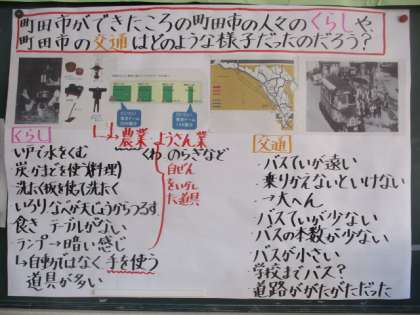 町田市ができたころの町田市の人々のくらしや、
町田市の交通はどのような様子だったのだろう?
くらし
いどで水をくむ
炭かまどを使う(料理)
洗たく板を使って洗たく
いろりなべが天じょうからつるす
食き テーブルがない
ランプ→暗い感じ
↳自動ではなく手を使う
道具が多い
農業 ようさん業
くわ のらぎなど
自ぜん
をいかし
た道具
交通
・バスていが遠い
・乗りかえないといけない
→大へん
・バスていが少ない
・バスの本数が少ない
・バスが小さい
・学校までバス?
・道路ががたがただった